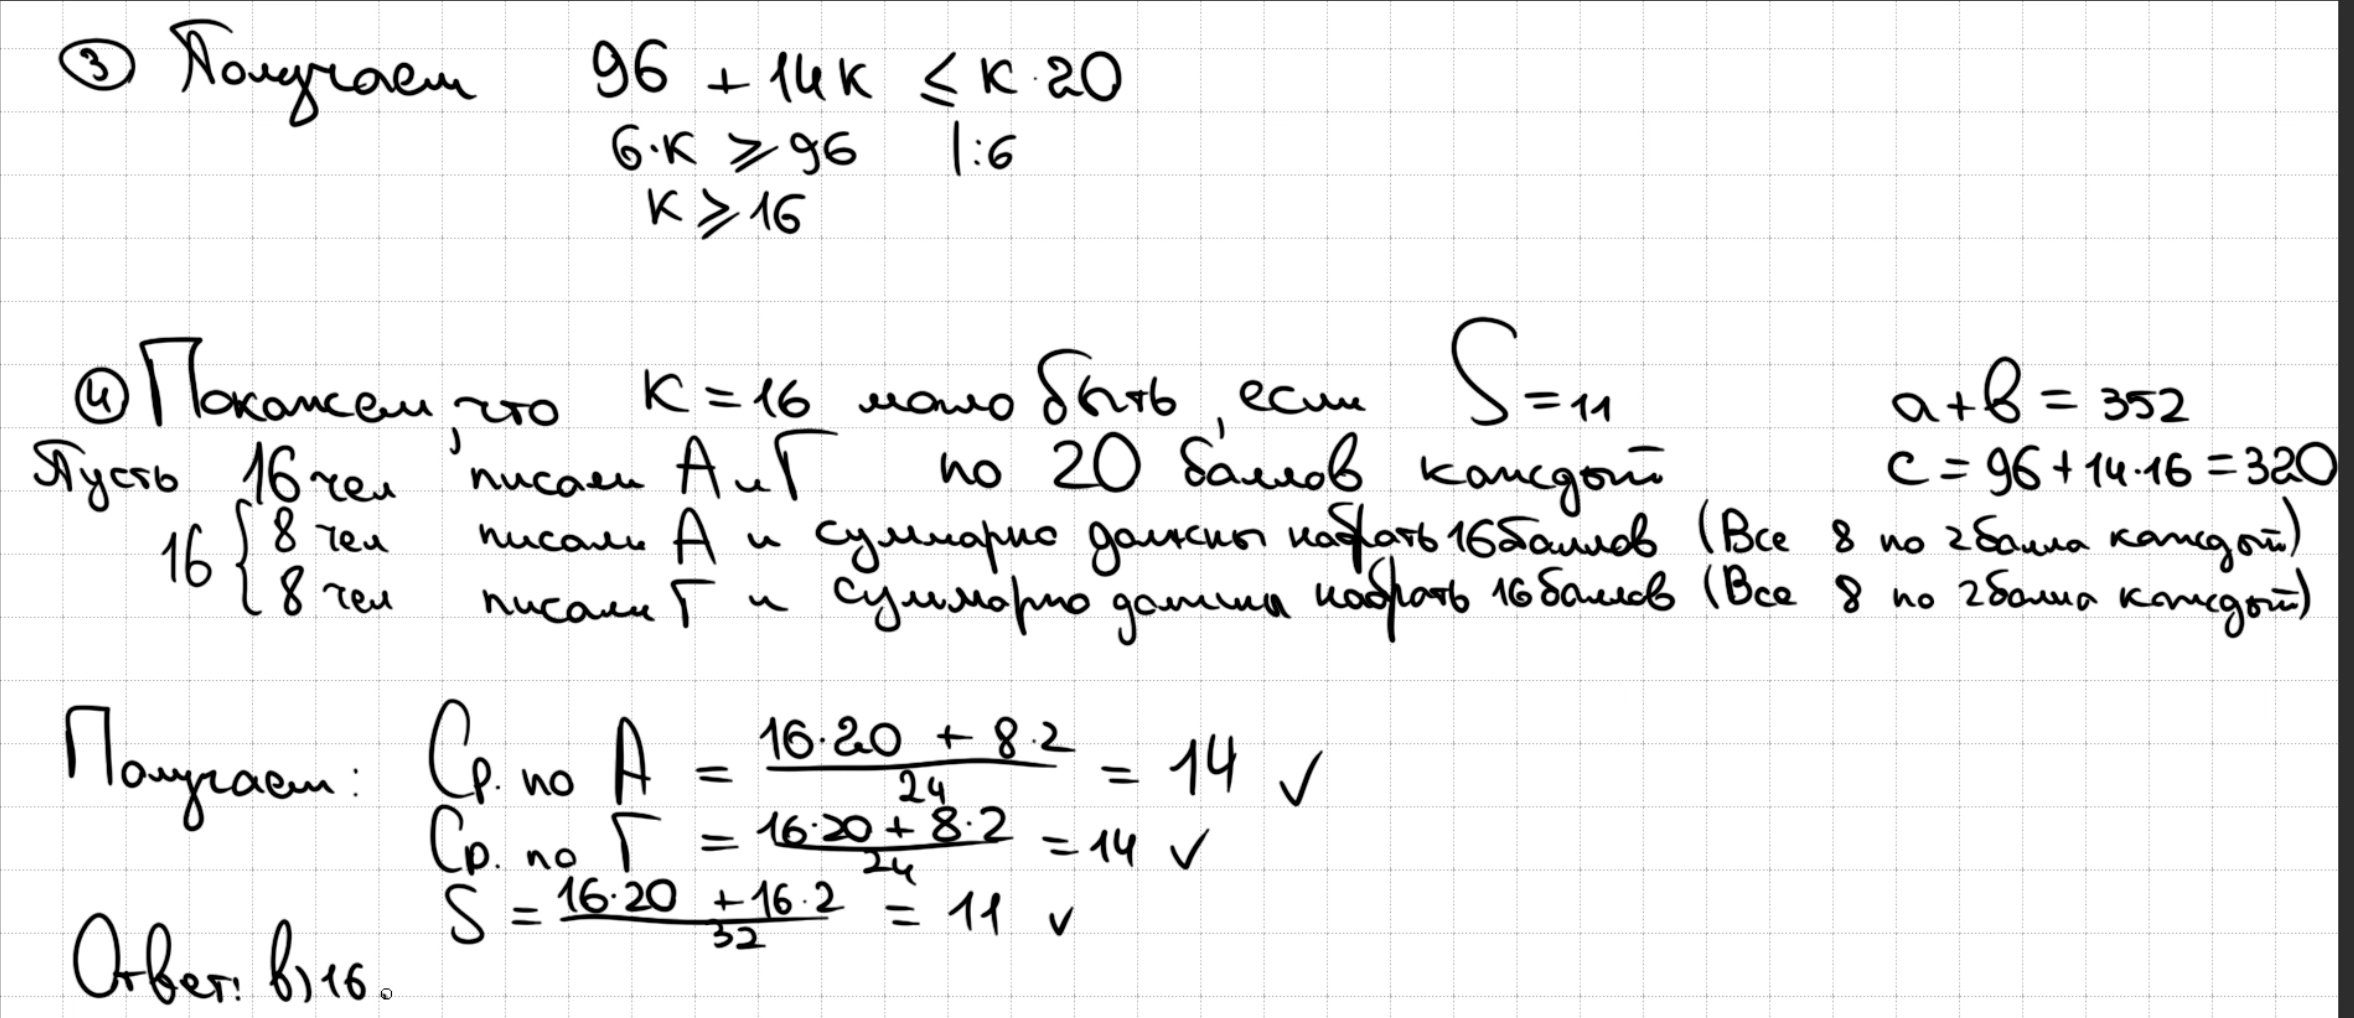 ③ Получаем 96 + 14к ≤ к·20
6·к ≥ 96 |:6
к ≥ 16
④ Покажем, что К = 16 может быть, если S = 11 a + b = 352
Пусть 16 чел писали А и Г по 20 баллов каждый c = 96 + 14·16 = 320
16 { 8 чел писали А и суммарно должны набрать 16 баллов (Все 8 по 2 балла каждый)
8 чел писали Г и суммарно должны набрать 16 баллов (Все 8 по 2 балла каждый)
Получаем: Ср. по А = (16·20 + 8·2)/24 = 14 ✓
Ср. по Г = (16·20 + 8·2)/24 = 14 ✓
S = (16·20 + 16·2)/32 = 11 ✓
Ответ: в) 16.